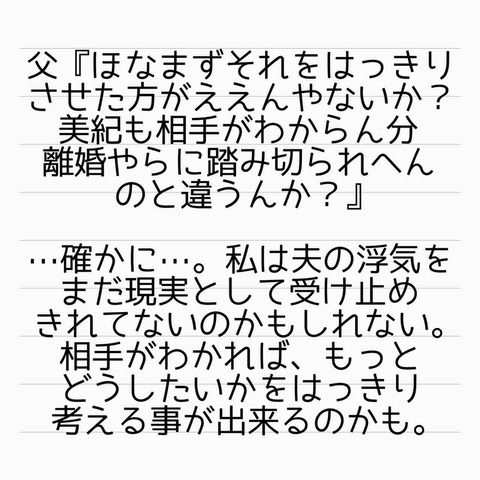 父『ほなまずそれをはっきり
させた方がええんやないか？
美紀も相手がわからん分
離婚やらに踏み切られへん
のと違うんか？』
…確かに…。私は夫の浮気を
まだ現実として受け止め
きれてないのかもしれない。
相手がわかれば、もっと
どうしたいかをはっきり
考える事が出来るのかも。